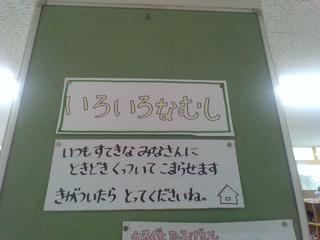 いろいろなむし
いつもすてきな みなさんに
ときどき くっついて こまらせます
きがついたら とってくださいね。